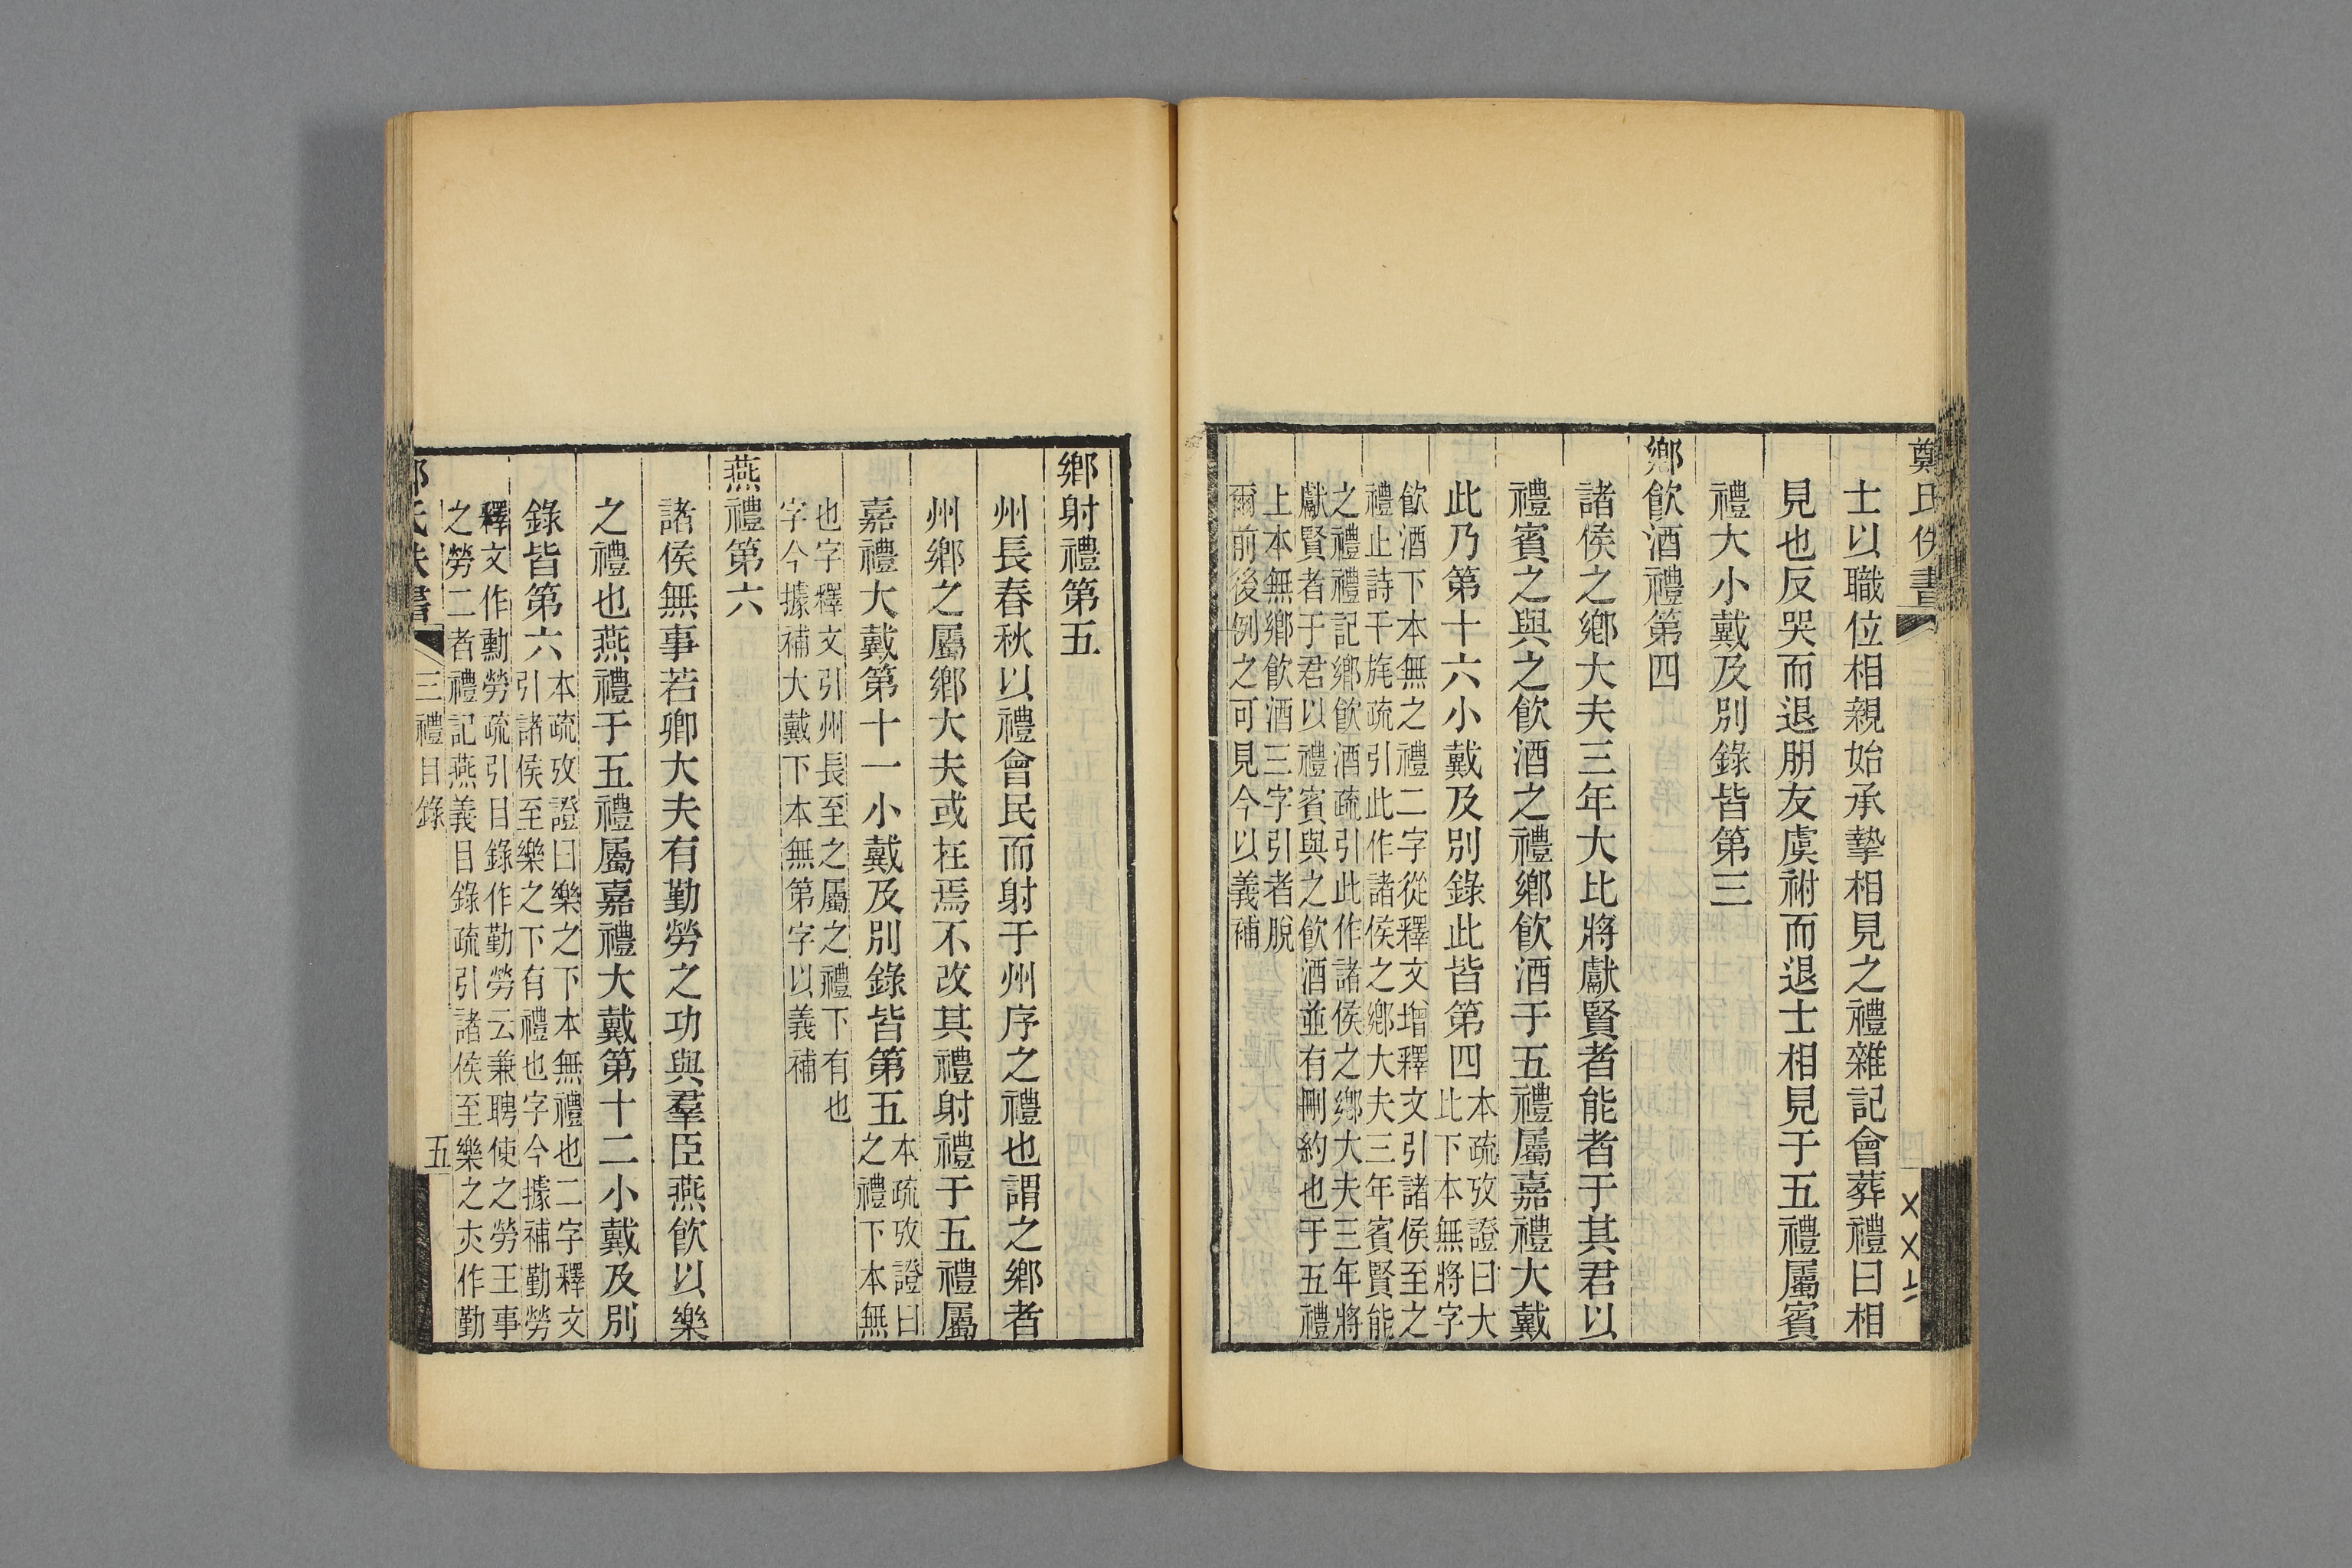 鄭氏佚書
士以職位相親始承摯相見之禮雜記會葬禮曰相
見也反哭而退朋友虞祔而退士相見于五禮屬賓
禮大小戴及別錄皆第三
鄉飲酒禮第四
諸侯之鄉大夫三年大比將獻賢者能者于其君以
禮賓之與之飲酒之禮鄉飲酒于五禮屬嘉禮大戴
此乃第十六小戴及別錄此皆第四
本疏攷證曰大
此下本無將字
飲酒下本無之禮二字從釋文增釋文引諸侯至之
禮止詩干旄疏引此作諸侯之鄉大夫三年賓賢能
之禮禮記鄉飲酒疏引此作諸侯之鄉大夫三年將
獻賢者于君以禮賓與之飲酒並有刪約也于五禮
上本無鄉飲酒三字引者脫
爾前後例之可見今以義補
鄉射禮第五
州長春秋以禮會民而射于州序之禮也謂之鄉者
州鄉之屬鄉大夫或在焉不改其禮射禮于五禮屬
嘉禮大戴第十一小戴及別錄皆第五
本疏攷證曰
之禮下本無
也字釋文引州長至之屬之禮下有也
字今據補大戴下本無第字以義補
燕禮第六
諸侯無事若卿大夫有勤勞之功與羣臣燕飲以樂
之禮也燕禮于五禮屬嘉禮大戴第十二小戴及別
錄皆第六
本疏攷證曰樂之下本無禮也二字釋文
引諸侯至樂之下有禮也字今據補勤勞
釋文作勳勞疏引目錄作勤勞云兼聘使之勞王事
之勞二者禮記燕義目錄疏引諸侯至樂之夾作勤
三禮目錄
五